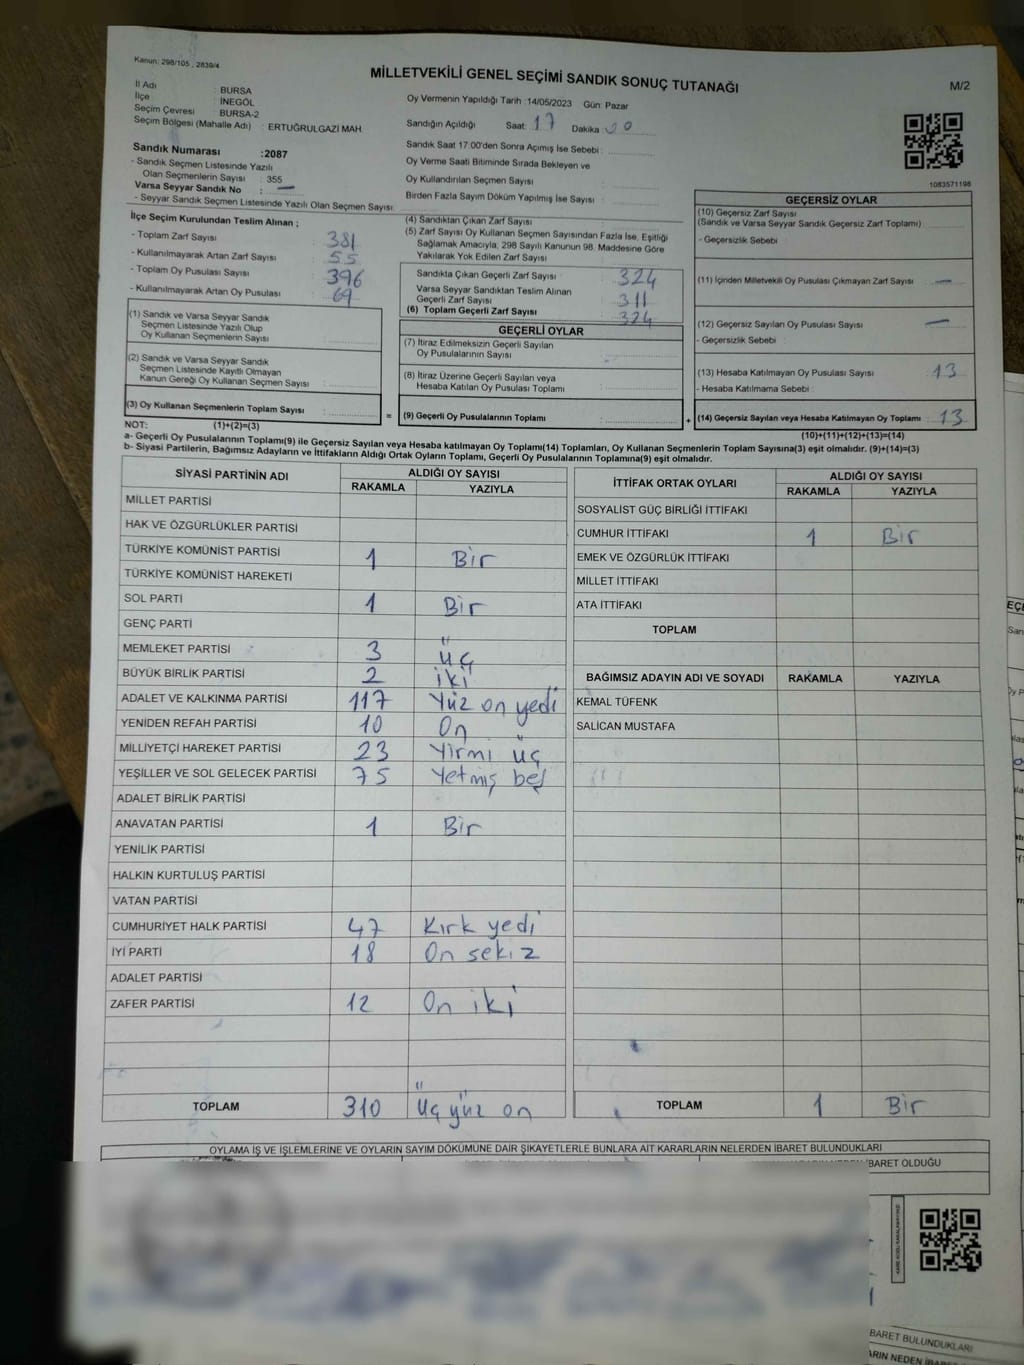 Kanun: 298/105 , 2839/4
MİLLETVEKİLİ GENEL SEÇİMİ SANDIK SONUÇ TUTANAĞI
M/2
İl Adı : BURSA
İlçe : İNEGÖL
Seçim Çevresi : BURSA-2
Seçim Bölgesi (Mahalle Adı) : ERTUĞRULGAZİ MAH.
Oy Vermenin Yapıldığı Tarih :14/05/2023 Gün: Pazar
Sandığın Açıldığı Saat: 17 Dakika : 00
Sandık Saat 17:00'den Sonra Açımış İse Sebebi :
Oy Verme Saati Bitiminde Sırada Bekleyen ve
Oy Kullandırılan Seçmen Sayısı :
Birden Fazla Sayım Döküm Yapılmış İse Sayısı :
1083571198
Sandık Numarası :2087
- Sandık Seçmen Listesinde Yazılı
Olan Seçmenlerin Sayısı : 355
Varsa Seyyar Sandık No : —
- Seyyar Sandık Seçmen Listesinde Yazılı Olan Seçmen Sayısı
İlçe Seçim Kurulundan Teslim Alınan ;
- Toplam Zarf Sayısı : 381
- Kullanılmayarak Artan Zarf Sayısı : 55
- Toplam Oy Pusulası Sayısı : 396
- Kullanılmayarak Artan Oy Pusulası : 69
(1) Sandık ve Varsa Seyyar Sandık
Seçmen Listesinde Yazılı Olup
Oy Kullanan Seçmenlerin Sayısı :
(2) Sandık ve Varsa Seyyar Sandık
Seçmen Listesinde Kayıtlı Olmayan
Kanun Gereği Oy Kullanan Seçmen Sayısı :
(3) Oy Kullanan Seçmenlerin Toplam Sayısı :
(4) Sandıktan Çıkan Zarf Sayısı :
(5) Zarf Sayısı Oy Kullanan Seçmen Sayısından Fazla İse, Eşitliği
Sağlamak Amacıyla, 298 Sayılı Kanunun 98. Maddesine Göre
Yakılarak Yok Edilen Zarf Sayısı :
Sandıkta Çıkan Geçerli Zarf Sayısı : 324
Varsa Seyyar Sandıktan Teslim Alınan
Geçerli Zarf Sayısı : 311
(6) Toplam Geçerli Zarf Sayısı : 324
GEÇERLİ OYLAR
(7) İtiraz Edilmeksizin Geçerli Sayılan
Oy Pusulalarının Sayısı :
(8) İtiraz Üzerine Geçerli Sayılan veya
Hesaba Katılan Oy Pusulası Toplamı :
= (9) Geçerli Oy Pusulalarının Toplamı :
GEÇERSİZ OYLAR
(10) Geçersiz Zarf Sayısı
(Sandık ve Varsa Seyyar Sandık Geçersiz Zarf Toplamı) :
- Geçersizlik Sebebi :
(11) İçinden Milletvekili Oy Pusulası Çıkmayan Zarf Sayısı : —
(12) Geçersiz Sayılan Oy Pusulası Sayısı : —
- Geçersizlik Sebebi :
(13) Hesaba Katılmayan Oy Pusulası Sayısı : 13
- Hesaba Katılmama Sebebi :
+ (14) Geçersiz Sayılan veya Hesaba Katılmayan Oy Toplamı : 13
NOT: (1)+(2)=(3) (10)+(11)+(12)+(13)=(14)
a- Geçerli Oy Pusulalarının Toplamı(9) ile Geçersiz Sayılan veya Hesaba katılmayan Oy Toplamı(14) Toplamları, Oy Kullanan Seçmenlerin Toplam Sayısına(3) eşit olmalıdır. (9)+(14)=(3)
b- Siyasi Partilerin, Bağımsız Adayların ve İttifakların Aldığı Ortak Oyların Toplamı, Geçerli Oy Pusulalarının Toplamına(9) eşit olmalıdır.
SİYASİ PARTİNİN ADI ALDIĞI OY SAYISI
RAKAMLA YAZIYLA
MİLLET PARTİSİ
HAK VE ÖZGÜRLÜKLER PARTİSİ
TÜRKİYE KOMÜNİST PARTİSİ 1 Bir
TÜRKİYE KOMÜNİST HAREKETİ
SOL PARTİ 1 Bir
GENÇ PARTİ
MEMLEKET PARTİSİ 3 üç
BÜYÜK BİRLİK PARTİSİ 2 iki
ADALET VE KALKINMA PARTİSİ 117 Yüz on yedi
YENİDEN REFAH PARTİSİ 10 On
MİLLİYETÇİ HAREKET PARTİSİ 23 Yirmi üç
YEŞİLLER VE SOL GELECEK PARTİSİ 75 Yetmiş beş
ADALET BİRLİK PARTİSİ
ANAVATAN PARTİSİ 1 Bir
YENİLİK PARTİSİ
HALKIN KURTULUŞ PARTİSİ
VATAN PARTİSİ
CUMHURİYET HALK PARTİSİ 47 Kırk yedi
İYİ PARTİ 18 On sekiz
ADALET PARTİSİ
ZAFER PARTİSİ 12 On iki
TOPLAM 310 üç yüz on
İTTİFAK ORTAK OYLARI ALDIĞI OY SAYISI
RAKAMLA YAZIYLA
SOSYALİST GÜÇ BİRLİĞİ İTTİFAKI
CUMHUR İTTİFAKI 1 Bir
EMEK VE ÖZGÜRLÜK İTTİFAKI
MİLLET İTTİFAKI
ATA İTTİFAKI
TOPLAM
BAĞIMSIZ ADAYIN ADI VE SOYADI RAKAMLA YAZIYLA
KEMAL TÜFENK
SALİCAN MUSTAFA
TOPLAM 1 Bir
OYLAMA İŞ VE İŞLEMLERİNE VE OYLARIN SAYIM DÖKÜMÜNE DAİR ŞİKAYETLERLE BUNLARA AİT KARARLARIN NELERDEN İBARET BULUNDUKLARI
İBARET OLDUĞU
İBARET BULUNDUKLARI